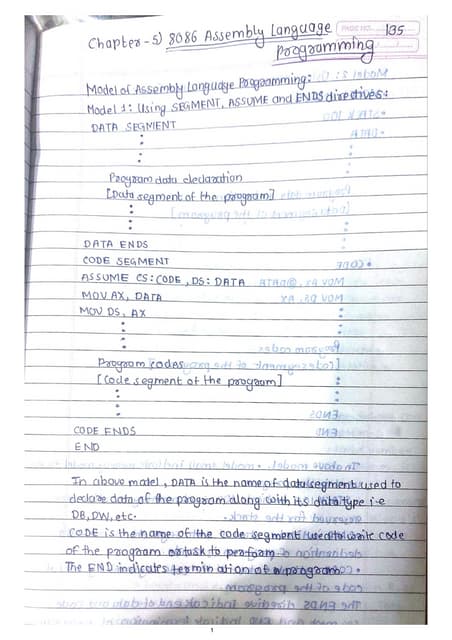 Chapter-5) 8086 Assembly Language
PAGE NO. 135
Programming
Model of Assembly Language Programming:
Model 1: Using SEGMENT, ASSUME and ENDS directives:
DATA SEGMENT
:
:
Program data declaration
[Data segment of the program]
:
:
DATA ENDS
CODE SEGMENT
ASSUME CS:CODE, DS:DATA
MOV AX, DATA
MOV DS, AX
:
:
Program codes
[Code segment of the program]
:
:
CODE ENDS
END
In above model, DATA is the name of data segment used to
declare data of the program along with its data type i.e
DB, DW, etc.
CODE is the name of the code segment used to write code
of the program or task to perform
The END indicates termination of a program.
1